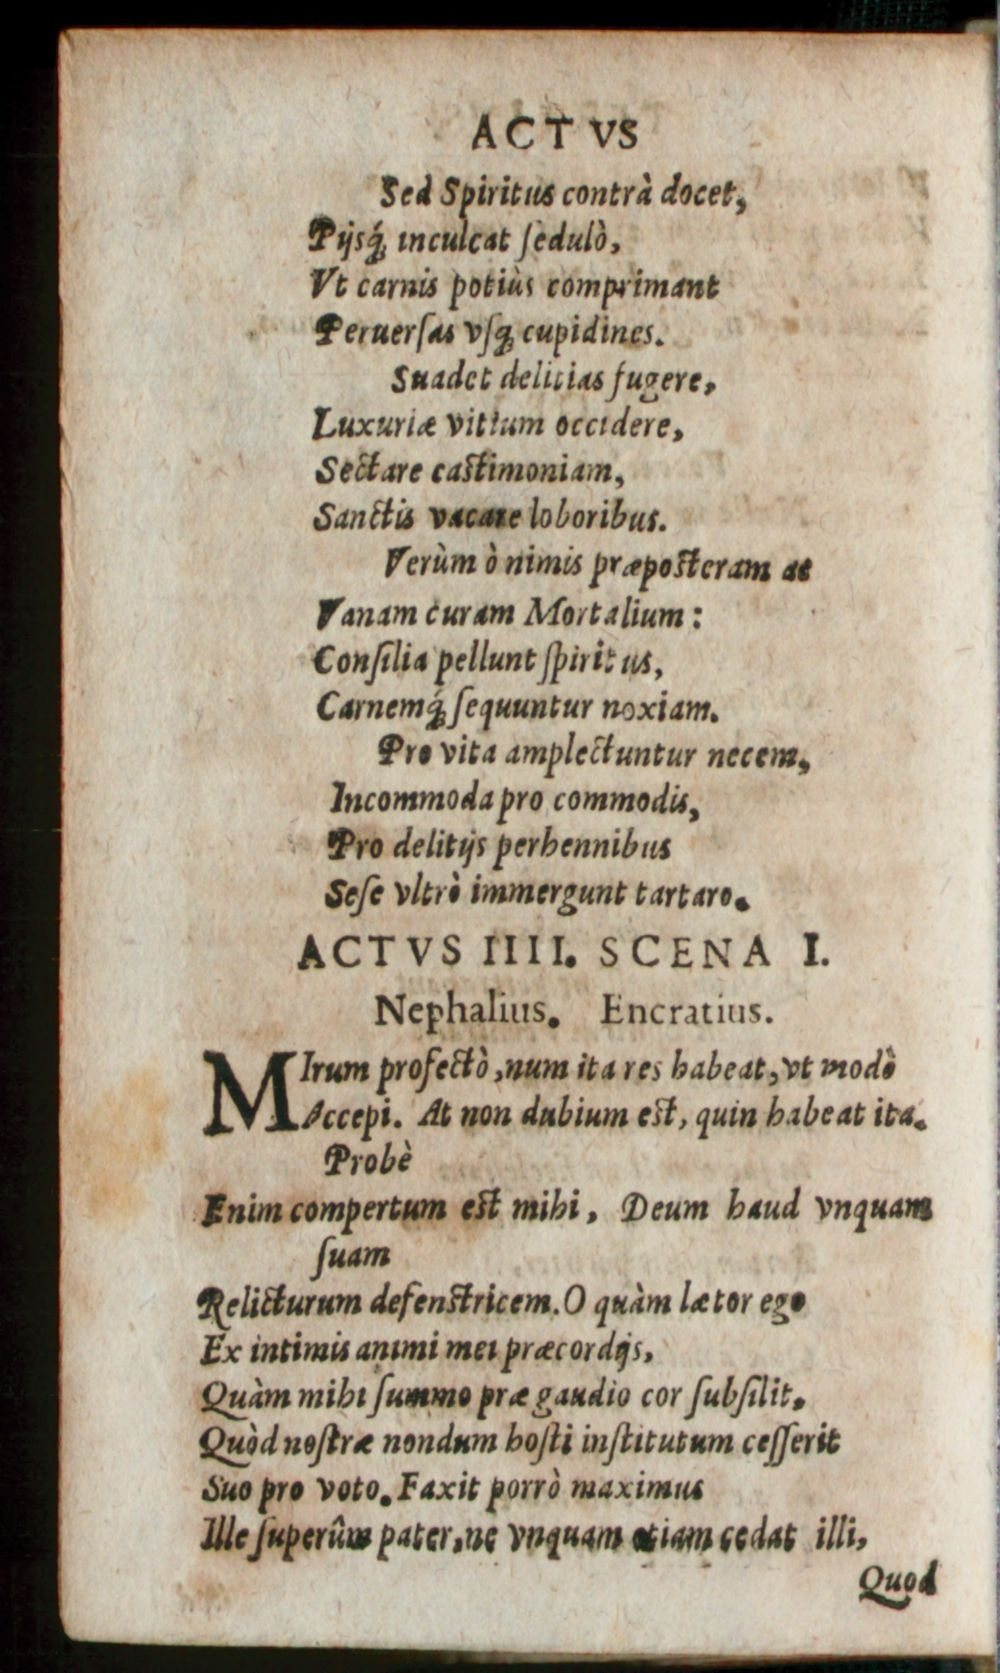 ACTVS
Sed Spiritus contrà docet,
Pijsq́; inculcat ſedulò,
Vt carnis potiùs comprimant
Peruerſas vſq; cupidines.
Suadet delitias fugere,
Luxuriæ vitium occidere,
Sectare castimoniam,
Sanctis vacare loboribus.
Verùm ò nimis præposteram ac
Vanam curam Mortalium:
Conſilia pellunt ſpiritus,
Carnemq́; ſequuntur noxiam.
Pro vita amplectuntur necem,
Incommoda pro commodis,
Pro delitijs perhennibus
Seſe vltrò immergunt tartaro.
ACTVS IIII. SCENA I.
Nephalius. Encratius.
MIrum profectò, num ita res habeat, vt modò
Accepi. At non dubium est, quin habeat ita.
Probè
Enim compertum est mihi, Deum haud vnquam
ſuam
Relicturum defenstricem. O quàm lætor ego
Ex intimis animi mei præcordijs,
Quàm mihi ſummo præ gaudio cor ſubſilit,
Quòd noſtræ nondum hoſti inſtitutum ceſſerit
Suo pro voto. Faxit porrò maximus
Ille ſuperûm pater, ne vnquam etiam cedat illi,
Quod